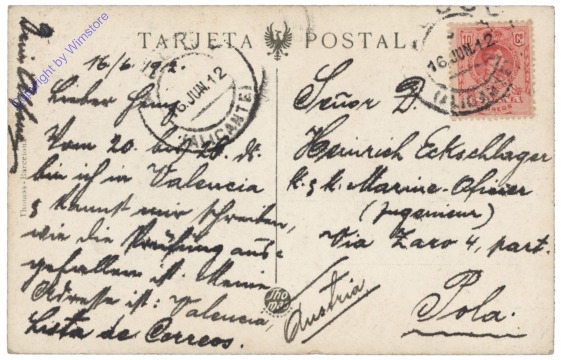 TARJETA POSTAL
16/6 1912.
Lieber Heinz,
Vom 20. bis 28. ds.
bin ich in Valencia
& kannst mir schreiben,
wie die Prüfung aus-
gefallen ist. Meine
Adresse ist: Valencia,
Lista de Correos.
Señor D.
Heinrich Eckschlager
k. & k. Marine-Ofizier
(Ingenieur)
Via Zaro 4, part.
Pola.
Austria
16 JUN 12
(ALICANTE)
16 JUN 12
(ALICANTE)
10 Cs
Thomas
Thomas - Barcelona
Copyright by Wimstore